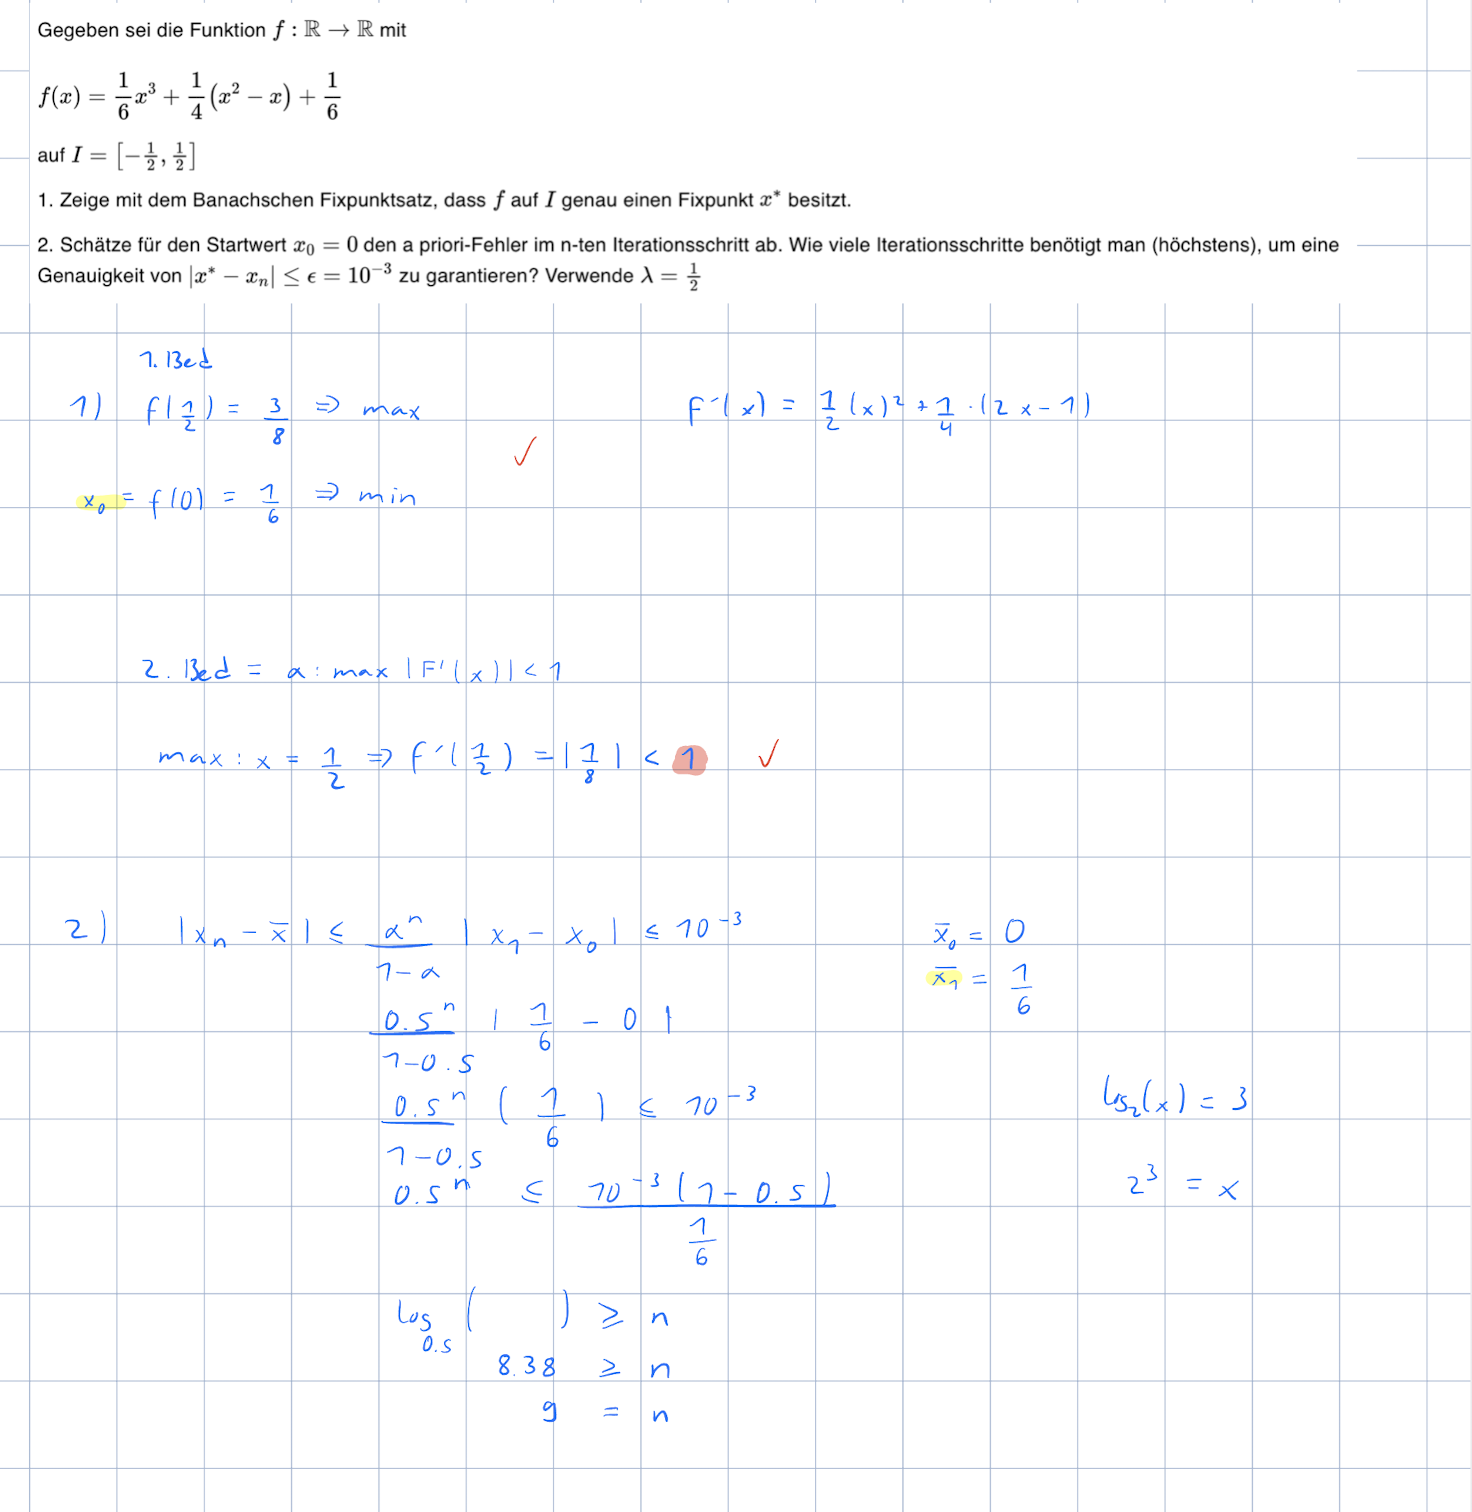 Gegeben sei die Funktion f : ℝ → ℝ mit
f(x) = 1/6 x³ + 1/4 (x² − x) + 1/6
auf I = [−1/2, 1/2]
1. Zeige mit dem Banachschen Fixpunktsatz, dass f auf I genau einen Fixpunkt x* besitzt.
2. Schätze für den Startwert x₀ = 0 den a priori-Fehler im n-ten Iterationsschritt ab. Wie viele Iterationsschritte benötigt man (höchstens), um eine
Genauigkeit von |x* − xₙ| ≤ ϵ = 10⁻³ zu garantieren? Verwende λ = 1/2
1. Bed
1) f(1/2) = 3/8 ⇒ max
F'(x) = 1/2 (x)² + 1/4 · (2x − 1)
✓
x₀ = f(0) = 1/6 ⇒ min
2. Bed = α : max |F'(x)| < 1
max : x = 1/2 ⇒ f'(1/2) = |1/8| < 1 ✓
2) |xₙ − x̄| ≤ αⁿ/(1−α) |x₁ − x₀| ≤ 10⁻³
x̄₀ = 0
x̄₁ = 1/6
0.5ⁿ/(1−0.5) |1/6 − 0|
0.5ⁿ/(1−0.5) (1/6) ≤ 10⁻³
log₂(x) = 3
0.5ⁿ ≤ 10⁻³(1−0.5)/(1/6)
2³ = x
log₀.₅ ( ) ≥ n
8.38 ≥ n
9 = n